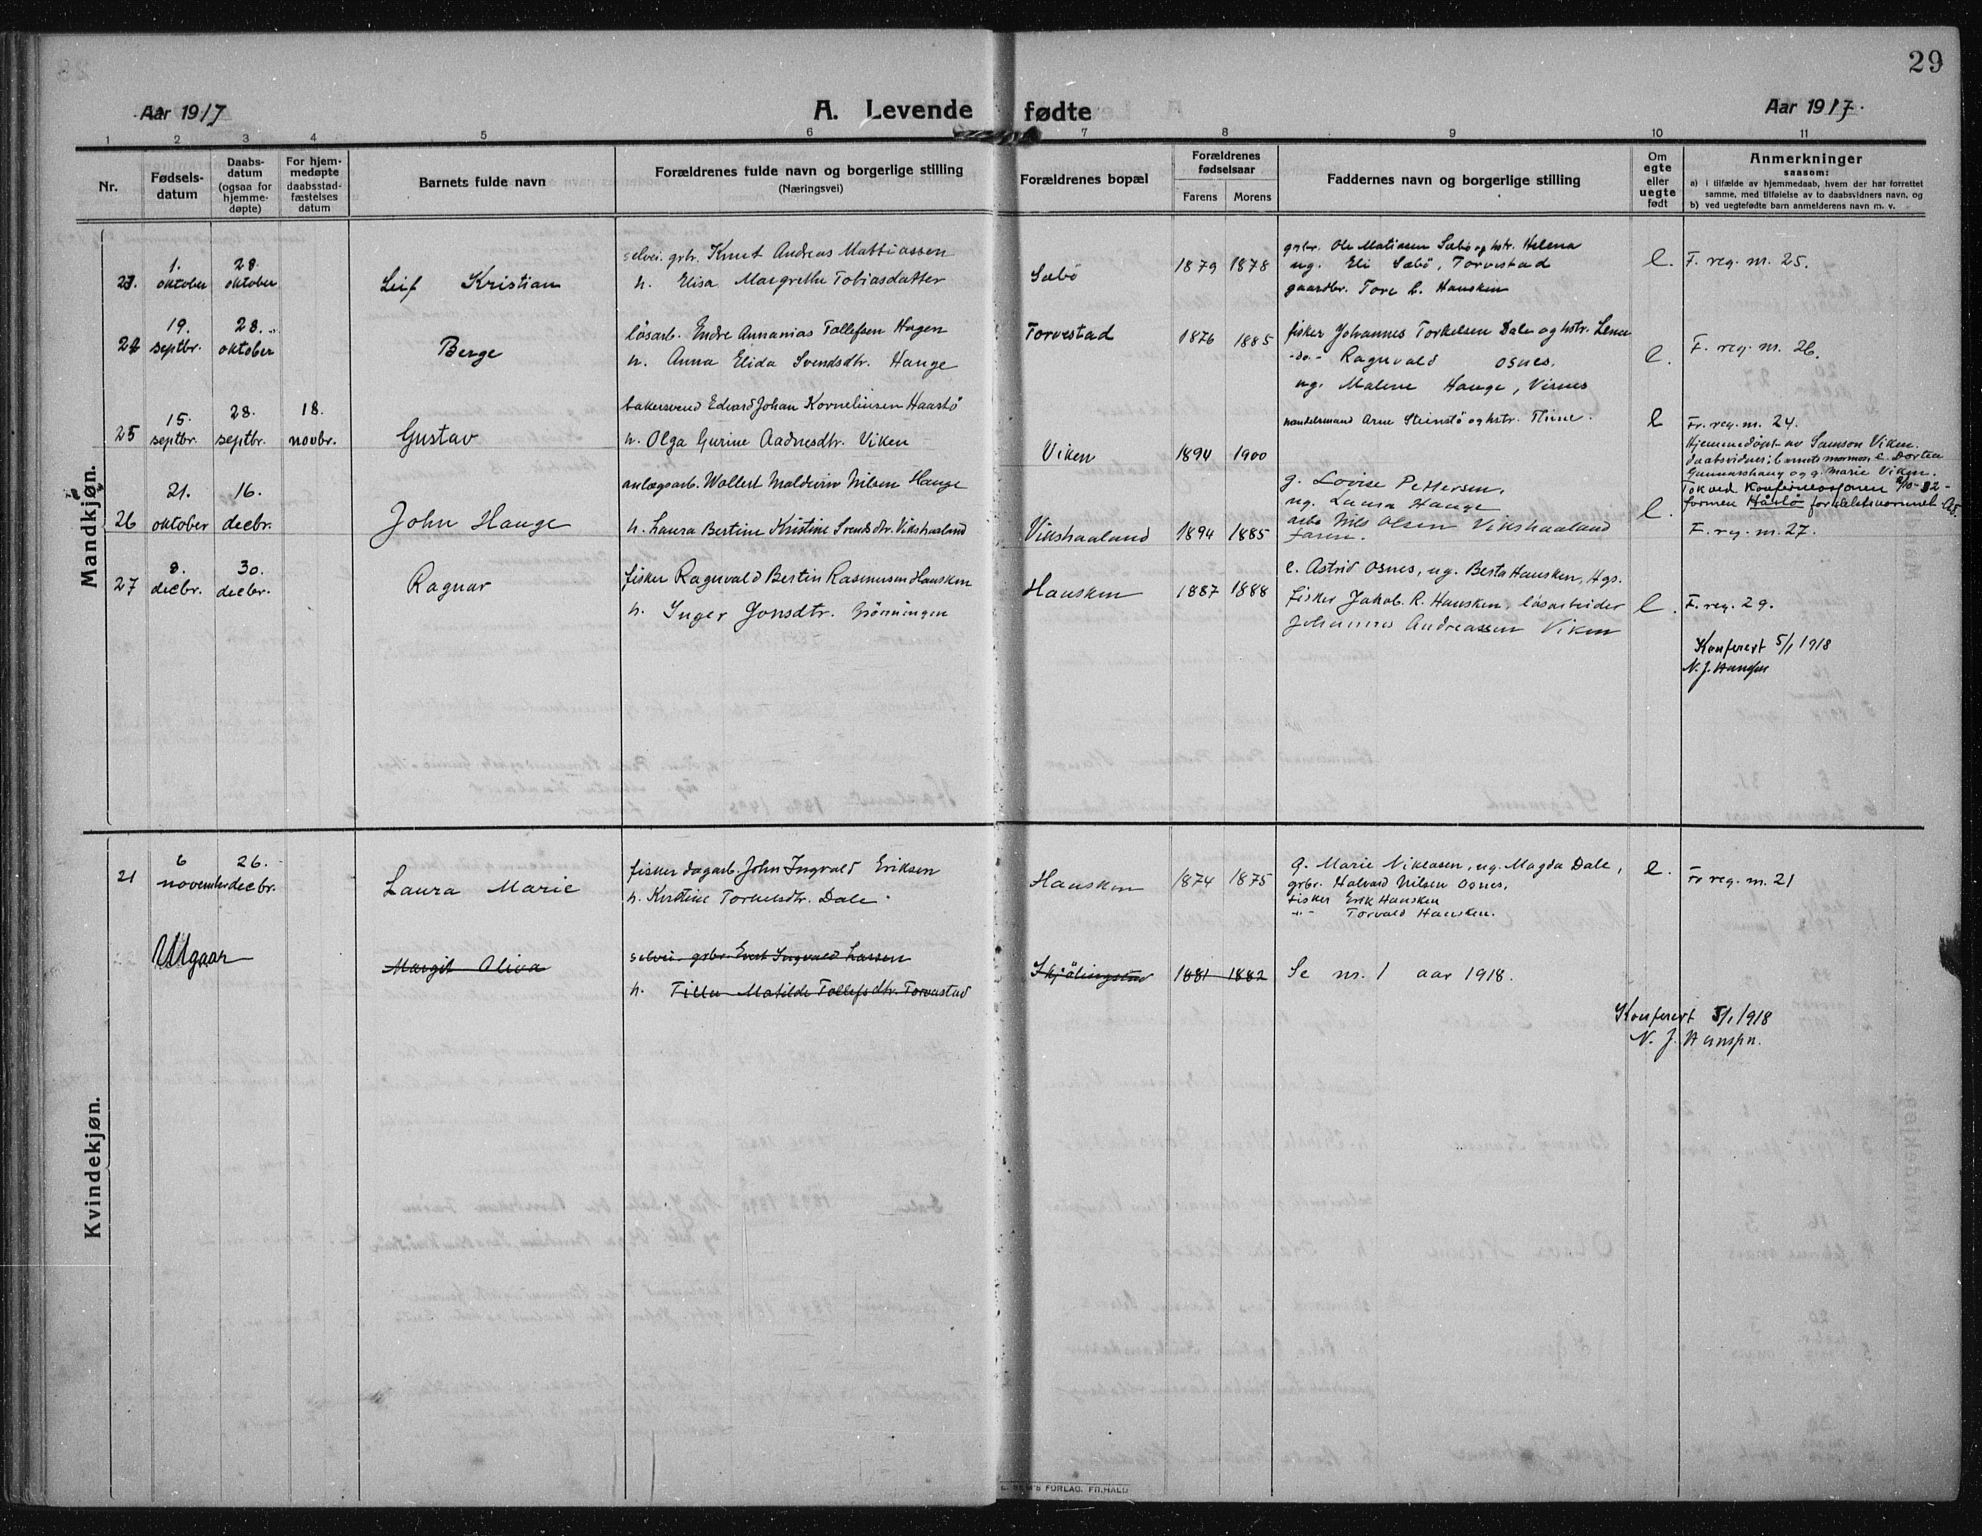 29
Aar 1917
A. Levende fødte
Aar 1917.
1 2 3 4 5 6 7 8 9 10 11
Nr.
Fødsels-
datum
Daabs-
datum
(ogsaa for
hjemme-
døpte)
For hjem-
medøpte
daabsstad-
fæstelses
datum
Barnets fulde navn
Forældrenes fulde navn og borgerlige stilling
(Næringsvei)
Forældrenes bopæl
Forældrenes
fødselsaar
Farens Morens
Faddernes navn og borgerlige stilling
Om
egte
eller
uegte
født
Anmerkninger
saasom:
a) i tilfælde av hjemmedaab, hvem der har forrettet
samme, med tilføielse av to daabsvidners navn, og
b) ved uegtefødte barn anmelderens navn m. v.
Mandkjøn.
23. 1. oktober 28. oktober
Leif Kristian
selvei. gbr. Knut Andreas Mattiassen
h. Elisa Margrethe Tobiasdatter
Sæbö 1879 1878
gsbr. Ole Matiasen Sæbö og hstr. Helena
ug. Eli Sæbö, Torvestad
gaardbr. Tore L. Hausken
e. F. reg. nr. 25.
24 19. septbr. 28. oktober
Berge
lösarb. Endre Annanias Tollefsen Hagen
h. Anna Elida Svendsdtr. Hauge
Torvestad 1876 1885
fisker Johannes Torkelsen Dale og hstr. Lena
-do- Ragnvald Osnes.
ug. Malene Hauge, Visnes
e. F. reg. nr. 26.
25 15. septbr. 28. septbr. 18. novbr.
Gustav
bakersvend Edvard Johan Korneliusen Haastö
h. Olga Gurine Aadnesdtr. Viken
Viken 1894 1900
handelsmand Arne Steinstö og hstr. Thine.
e Fr. reg. nr. 24.
Hjemmedöpt av Samson Viken.
daabsvidner: barnets mormor, e. Dortea
Gunnarshaug og g. Marie Viken.
Tok ved Konferensjonen 2/10-32-
formen Håstø for slektsnavnet
26 21. oktober 16. decbr.
John Hauge
anlægsarb. Wollert Maldevin Nilsen Hauge
h. Laura Bertine Kristine Svendsdtr. Vikshaaland
Vikshaaland 1894 1885
g. Lovise Pettersen,
ug. Laura Hauge
arb. Nils Olsen Vikshaaland
faren.
e. F. reg. nr. 27.
27 9. decbr. 30. decbr.
Ragnar
fisker Ragnvald Bertin Rasmussen Hausken
h. Inger Jonsdtr. Grönningen
Hausken 1887 1888
e. Astrid Osnes, ug. Berta Hausken, Hgs.
fisker Jakob R. Hausken, lösarbeider
Johannes Andreassen Viken
e. F. reg. 29.
Konferert 5/1 1918
N. J. Hansen
Kvindekjøn.
21 6 november 26. decbr.
Laura Marie
fisker dagarb. John Ingvald Eriksen
h. Kristine Torkelsdtr. Dale.
Hausken 1874 1875
g. Marie Niklasen, ug. Magda Dale,
gsbr. Halvard Nilsen Osnes,
fisker Erik Hausken
-"- Torvald Hausken.
e. Fr reg. nr. 21
Utgaar
Margit Oliva
selvei. gsbr. Evert Ingvald Larsen
h. Tilla Matilde Tollefsdtr. Torvestad
Skjölingstad 1881 1882
Se nr. 1 aar 1918.
Konferert 5/1 1918
N. J. Hansen.
FORLAG, FR.HALD